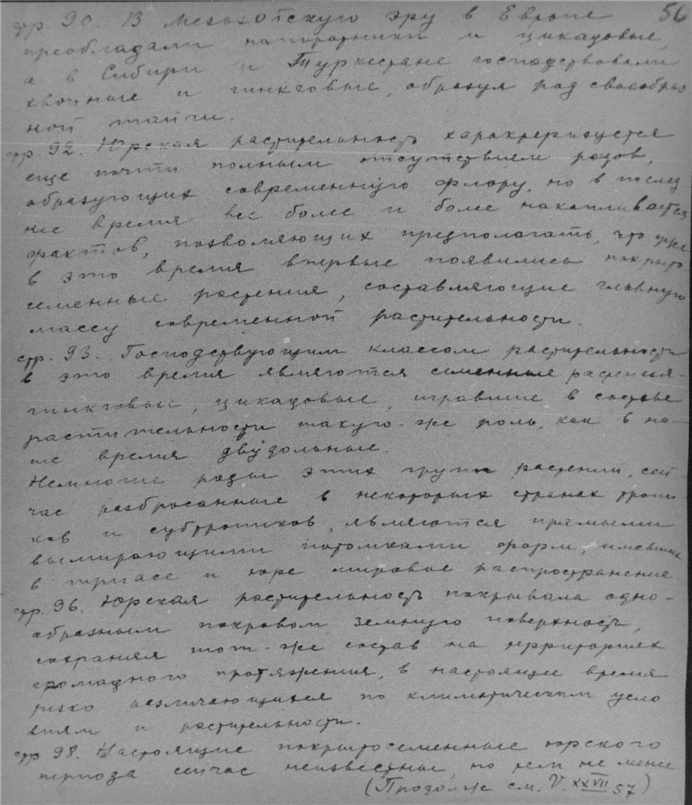 стр. 90. В Мезозойскую эру в Европе 56
преобладали папоротники и цикадовые,
а в Сибири и Туркестане господствовали
хвойные и гинкговые, образуя род своеобраз
ной тайги.
стр. 92. Юрская растительность характеризуется
еще почти полным отсутствием родов,
образующих современную флору, но в послед
нее время все более и более накапливается
фактов, позволяющих предполагать, что уже
в это время впервые появились покрыто
семенные растения, составляющие главную
массу современной растительности.
стр. 93. Господствующим классом растительности
в это время являются семенные растения-
гинкговые, цикадовые, игравшие в составе
растительности такую-же роль, как в на-
ше время двудольные.
Немногие роды этих групп растений, сей-
час разбросанные в некоторых странах тропи
ков и субтропиков, являются прямыми
вымирающими потомками форм, имевших
в триасе и юре мировое распространение
стр. 96. Юрская растительность покрывала одно-
образным покровом земную поверхность,
сохраняя тот-же состав на территориях
громадного протяжения, в настоящее время
резко различающихся по климатическим усло
виям и растительности.
стр. 98. Настоящие покрытосеменные юрского
периода сейчас неизвестны, но тем не мене
(Продолж см. V XXVII 57)